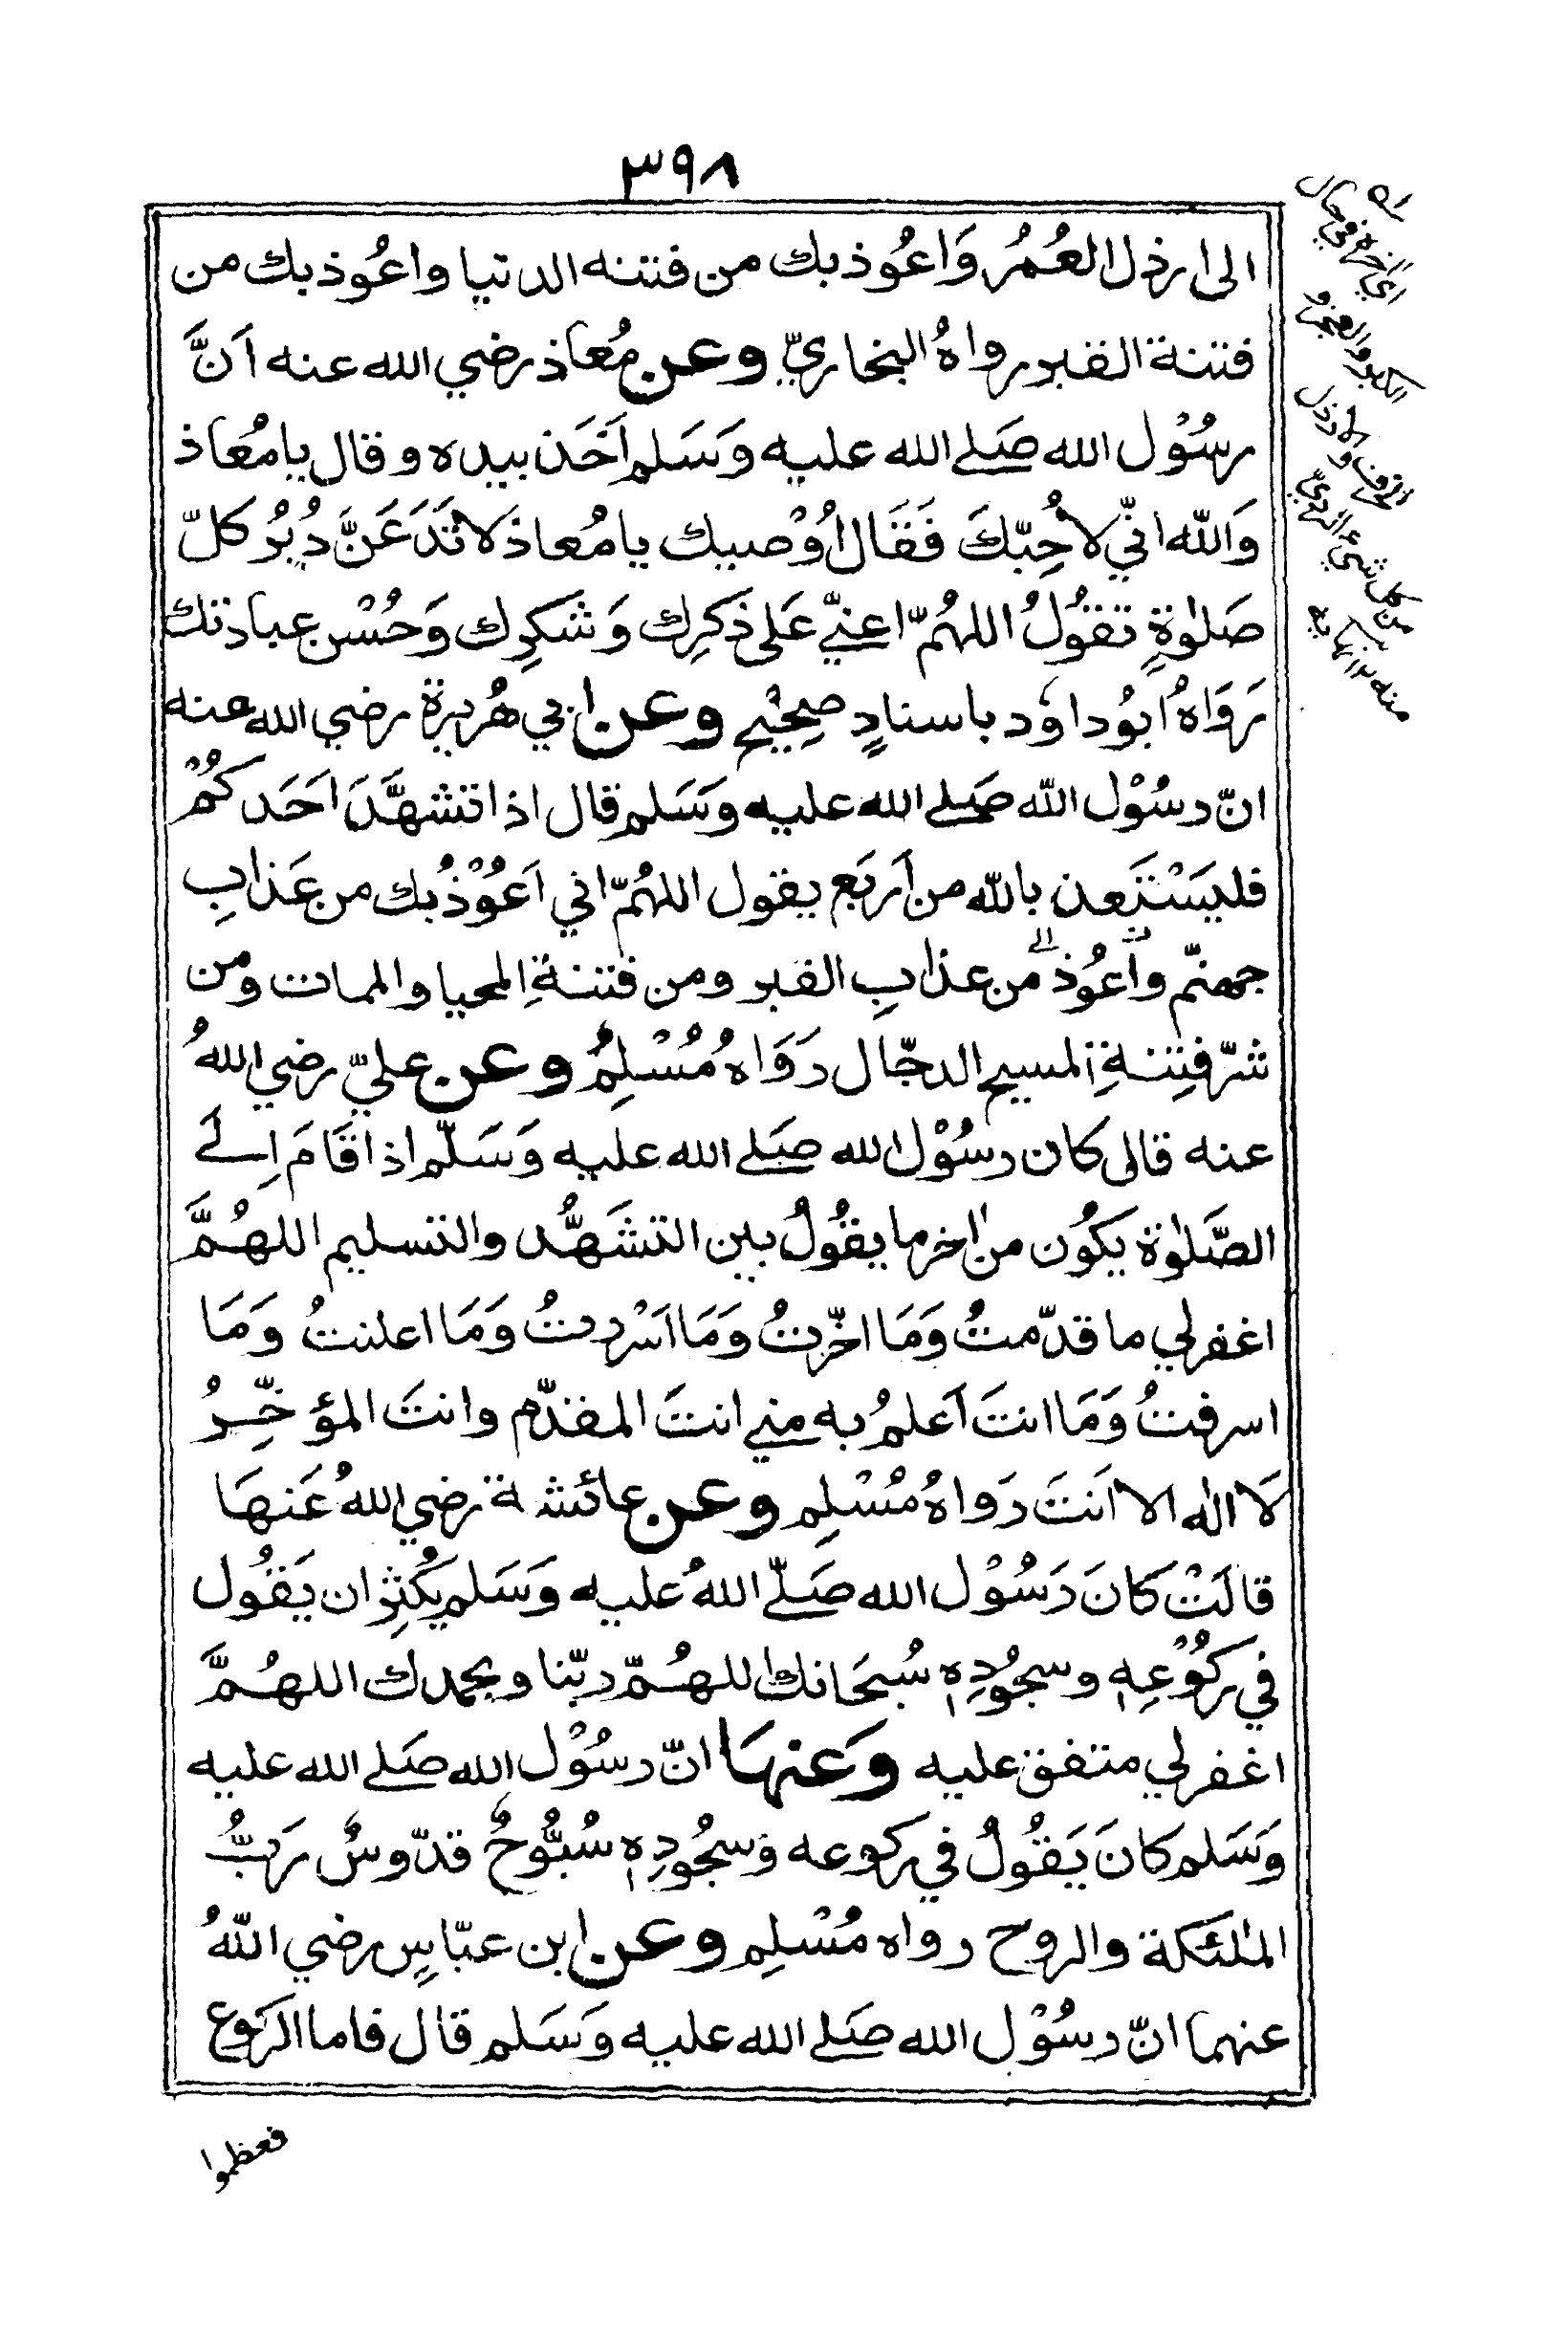 ٣٩٨
الى ارذل العُمُر وَاعُوذ بك من فتنه الدنيا واعُوذ بك من
فتنة القبر رواهُ البخاريّ وعن مُعاذ رضي الله عنه اَنَّ
رسُوْل الله صَلے الله عليه وَسَلم اَخَذ بيده وقال يا مُعَاذ
وَاللّه انّي لاُحِبّكَ فَقَال اُوْصيك يا مُعاذ لا تَدَعَنَّ دُبُر كلّ
صَلوٰةٍ تقُولُ اللهُمّ اعنيّ عَلى ذَكرِك وَشَكرِك وَحُسْن عبادتك
رَوَاهُ اَبُو داوٗد باسنادٍ صحِيْح وعن ابي هُريرة رضي الله عنه
انّ رسُوْل اللّه صَلے الله عليه وسَلم قال اذا تشهَّدَ احَدكُمْ
فليسْتَعذ باللّه من اَربَع يقول اللهُمّ اني اَعُوْذُبك من عَذابِ
جهنّم واَعُوذ من عذابِ القبر ومن فتنةِ المحيا والممات ومن
شرّ فِتنةِ المسيح الدجّال رَوَاهُ مُسْلِمٌ وعن عليّ رضي اللهُ
عنه قال كان رسُوْل الله صَلے الله عليه وَسَلّم اذا قَامَ اِلے
الصَّلوٰة يكُون من اٰخر ما يقُولُ بين التشَهُّد والتسليم اللهُمَّ
اغفرلي ما قدّمتُ وَمَا اخّرتُ وَمَا اسْررتُ وَمَا اعلنتُ وَمَا
اسرفتُ وَمَا انتَ اَعلمُ به مني انتَ المقدّم وانتَ المؤخِّرُ
لَا اله الا اَنتَ رَواهُ مُسْلِم وعن عائشة رضي اللهُ عَنهَا
قالَتْ كانَ رَسُوْل الله صَلّے اللهُ عليه وَسَلم يُكثِر ان يَقُول
في ركُوْعِهٖ وسجُودِهٖ سُبحَانك اللهُمّ ربّنا وبحمدك اللهُمَّ
اغفرلي متفق عليه وَعنهَا انّ رسُوْل الله صَلے الله عليه
وَسَلم كانَ يَقُولُ في ركوعه وَسجُودِهٖ سُبُّوحٌ قدّوسٌ رَبُّ
الملٰئكة والروح رواه مُسْلِم وعن ابن عبّاسٍ رضي اللّهُ
عنهما انّ رسُوْل الله صَلے الله عليه وَسَلم قال فاما الركوع
فعظموا